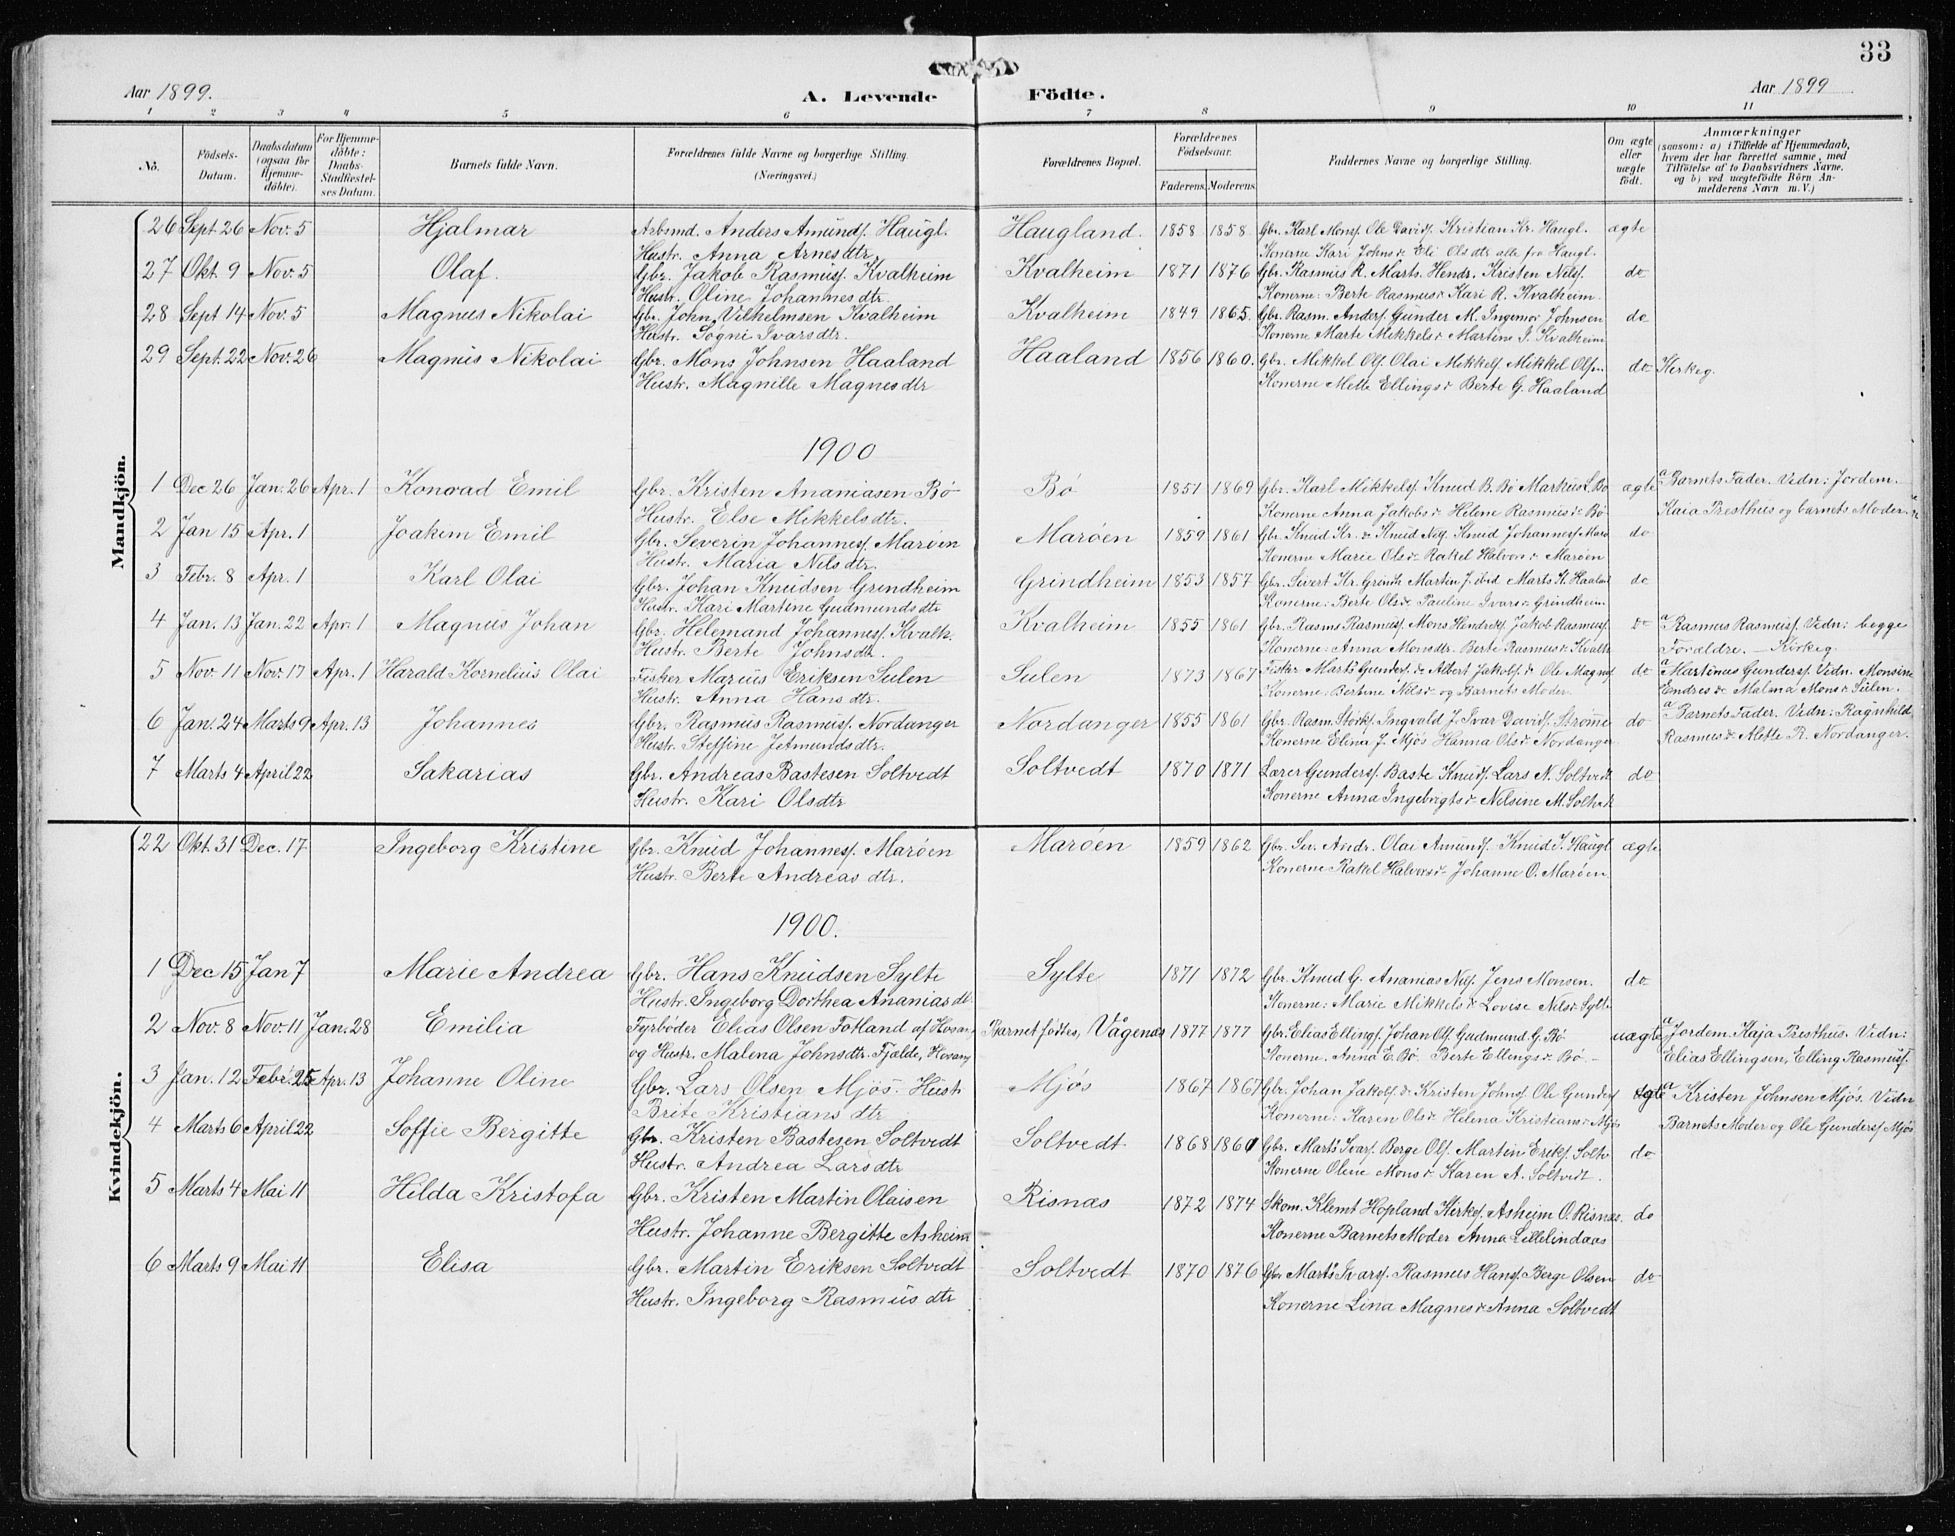 33
Aar 1899. A. Levende Födte. Aar 1899
1 2 3 4 5 6 7 8 9 10 11
No. Födsels-Datum. Daabsdatum (ogsaa for Hjemmedöbte). For Hjemmedöbte: Daabs-Stadfæstelses Datum. Barnets fulde Navn. Forældrenes fulde Navne og borgerlige Stilling. (Næringsvei.) Forældrenes Bopæl. Forældrenes Födselsaar. Faderens. Moderens. Faddernes Navne og borgerlige Stilling. Om ægte eller uægte födt. Anmærkninger (saasom: a) i Tilfælde af Hjemmedaab, hvem der har forrettet samme, med Tilföielse af to Daabsvidners Navne, og b) ved uægtefödte Börn Anmelderens Navn m. V.)
Mandkjön.
26 Sept 26 Nov. 5 Hjalmar Arbsmd. Anders Amunds. Haugl. Haugland. 1858 1858 Gbr. Karl Mons. Ole Davids. Kristian Kr. Haugl. ægte
Hustr. Anna Arnesdtr. Konerne Kari Johnsdr Eli Olsdtr alle fra Haugl.
27 Okt. 9 Nov. 5 Olaf. Gbr. Jakob Rasmuss. Kvalheim Kvalheim 1871 1876 Gbr. Rasmus R. Marts. Hendr. Kristen Nils. do
Hustr. Oline Johannesdtr. Konerne: Berte Rasmusdr Kari R. Kvalheim.
28 Sept 14 Nov. 5 Magnus Nikolai Gbr. John Vilhelmsen Kvalheim Kvalheim 1849 1865. Gbr. Rasm. Anders. Gunder M. Ingemor Johnsen do
Hustr. Søgni Ivarsdtr. Konerne Marte Mikkelsdr Martine J. Kvalheim
29 Sept. 22 Nov. 26 Magnus Nikolai Gbr. Mons Johnsen Haaland Haaland 1856 1860. Gbr. Mikkel Ols. Olai Mikkels. Mikkel Olsen do Kirkeg.
Hustr. Magnille Magnesdtr Konerne Mette Ellingsdr Berte G. Haaland
1900
1 Dec 26 Jan. 26 Apr. 1 Konrad Emil Gbr. Kristen Ananiasen Bø Bø 1851 1869 Gbr. Karl Mikkels. Knud B. Bø Markus L. Bø ægte a Barnets Fader. Vidn: Jordem.
Hustr. Else Mikkelsdtr. Konerne Anna Jakobsdr Helene Rasmusdr Bø Kaia Presthus og barnets Moder.
2 Jan 15 Apr. 1 Joakim Emil Gbr. Severin Johanness. Marøen Marøen 1859 1861 Gbr. Knud Kr. & Knud Nils. Knud Johanness. Marø do
Hustr. Maria Nilsdtr. Konerne Marie Olsdr Rakel Halvorsdr Marøen
3 Febr. 8 Apr. 1 Karl Olai Gbr. Johan Knudsen Grindheim Grindheim 1853 1857 Gbr. Sivert Kr. Grindh. Martin J. ibid Marts K. Haaland do
Hustr. Kari Martine Gudmundsdtr Konerne: Berte Olsdr. Pauline Ivarsdr Grindheim.
4 Jan. 13 Jan. 22 Apr. 1 Magnus Johan Gbr. Helemand Johanness. Kvalh. Kvalheim 1855 1861 Gbr. Rasms Rasmuss. Mons Hendriks. Jakob Rasmuss. do a Rasmus Rasmuss. Vidn: begge
Hustr. Berte Johnsdtr. Konerne: Anna Monsdtr. Berte Rasmusdr Kvalh. Forældre. – Kirkeg.
5 Nov. 11 Nov. 17 Apr. 1 Harald Kornelius Olai Fisker Marius Eriksen Sulen Sulen 1873 1867 Fiskr Marts Gunders. & Albert Jakobs. & Ole Magnes. do a Martinus Gunders. Vidn. Monsine
Hustr. Anna Hansdtr. Konerne: Bertine Nilsdr og Barnets Moder. Endresdr Malina Monsdr Sulen.
6 Jan. 24 Marts 9 Apr. 13 Johannes Gbr. Rasmus Rasmuss. Nordanger Nordanger 1855 1861 Gbr. Rasm. Störks. Ingvald J. Ivar Davids. Strømme do a Barnets Fader. Vidn: Ragnhild
Hustr. Steffine Jetmundsdtr. Konerne Elina J. Mjös Hanna Olsdr Nordanger Rasmusdr Alette R. Nordanger.
7 Marts 4 April 22 Sakarias Gbr. Andreas Bastesen Soltvedt Soltvedt 1870 1871 Lærer Gunders. Baste Knuds. Lars N. Soltvedt do
Hustr. Kari Olsdtr Konerne Anna Ingebregtsdr Nilsine M. Soltvedt
Kvindekjön.
22 Okt. 31 Dec. 17 Ingeborg Kristine Gbr. Knud Johanness. Marøen Marøen 1859 1862 Gbr. Sev. Andr. Olai Amunds. Knud J. Haugl ægte
Hustr. Berte Andreasdtr. Konerne Rakel Halvorsdr Johanne O. Marøen
1900.
1 Dec 15 Jan 7 Marie Andrea Gbr. Hans Knudsen Sylte Sylte 1871 1872 Gbr. Knud G. Ananias Nils. Jens Monsen. do
Hustr. Ingeborg Dorthea Ananiasdt. Konerne: Marie Mikkelsdr Lovise Nilsdr Sylte
2 Nov. 8 Nov. 11 Jan. 28 Emilia Fyrbøder Elias Olsen Fotland af Hosan. Barnet fødtes, Vågenes 1877 1877 Gbr. Elias Ellings. Johan Ols. Gudmund G. Bø uægte a Jordem. Kaja Presthus. Vidn:
og Hustr. Malena Johnsdtr. Fjalde, Hosang Konerne. Anna E. Bø. Berte Ellingsdr Bø – Elias Ellingsen, Elling Rasmuss.
3 Jan. 12 Febr. 25 Apr. 13 Johanne Oline Gbr. Lars Olsen Mjös. Hustr Mjøs 1867 1867 Gbr. Johan Jakobs. & Kristen Johns. Ole Gunders. ægte a Kristen Johnsen Mjös. Vidn
Brite Kristiansdtr Konerne: Karen Olsdr Helena Kristiansdr Mjøs Barnets Moder og Ole Gunders. Mjös
4 Marts 6 April 22 Soffie Bergitte Gbr. Kristen Bastesen Soltvedt Soltvedt 1868 1860 Gbr. Marts Ivars. Berge Ols. Martin Eriks. Soltv do
Hustr. Andrea Larsdtr Konerne Oline Monsdr Karen A. Soltvedt.
5 Marts 4 Mai 11 Hilda Kristofa Gbr. Kristen Martin Olaisen Risnæs 1872 1874 Skom. Klemt Hopland Kirkes. Asheim O. Risnæs. do
Hustr. Johanne Bergitte Asheim Konerne Barnets Moder Anna Lillelindaas
6 Marts 9 Mai 11 Elisa Gbr. Martin Eriksen Soltvedt Soltvedt 1870 1876 Gbr Marts Ivars. Rasmus Hans. Berge Olsen do
Hustr. Ingeborg Rasmusdtr Konerne Lina Magnesdr Anna Soltvedt